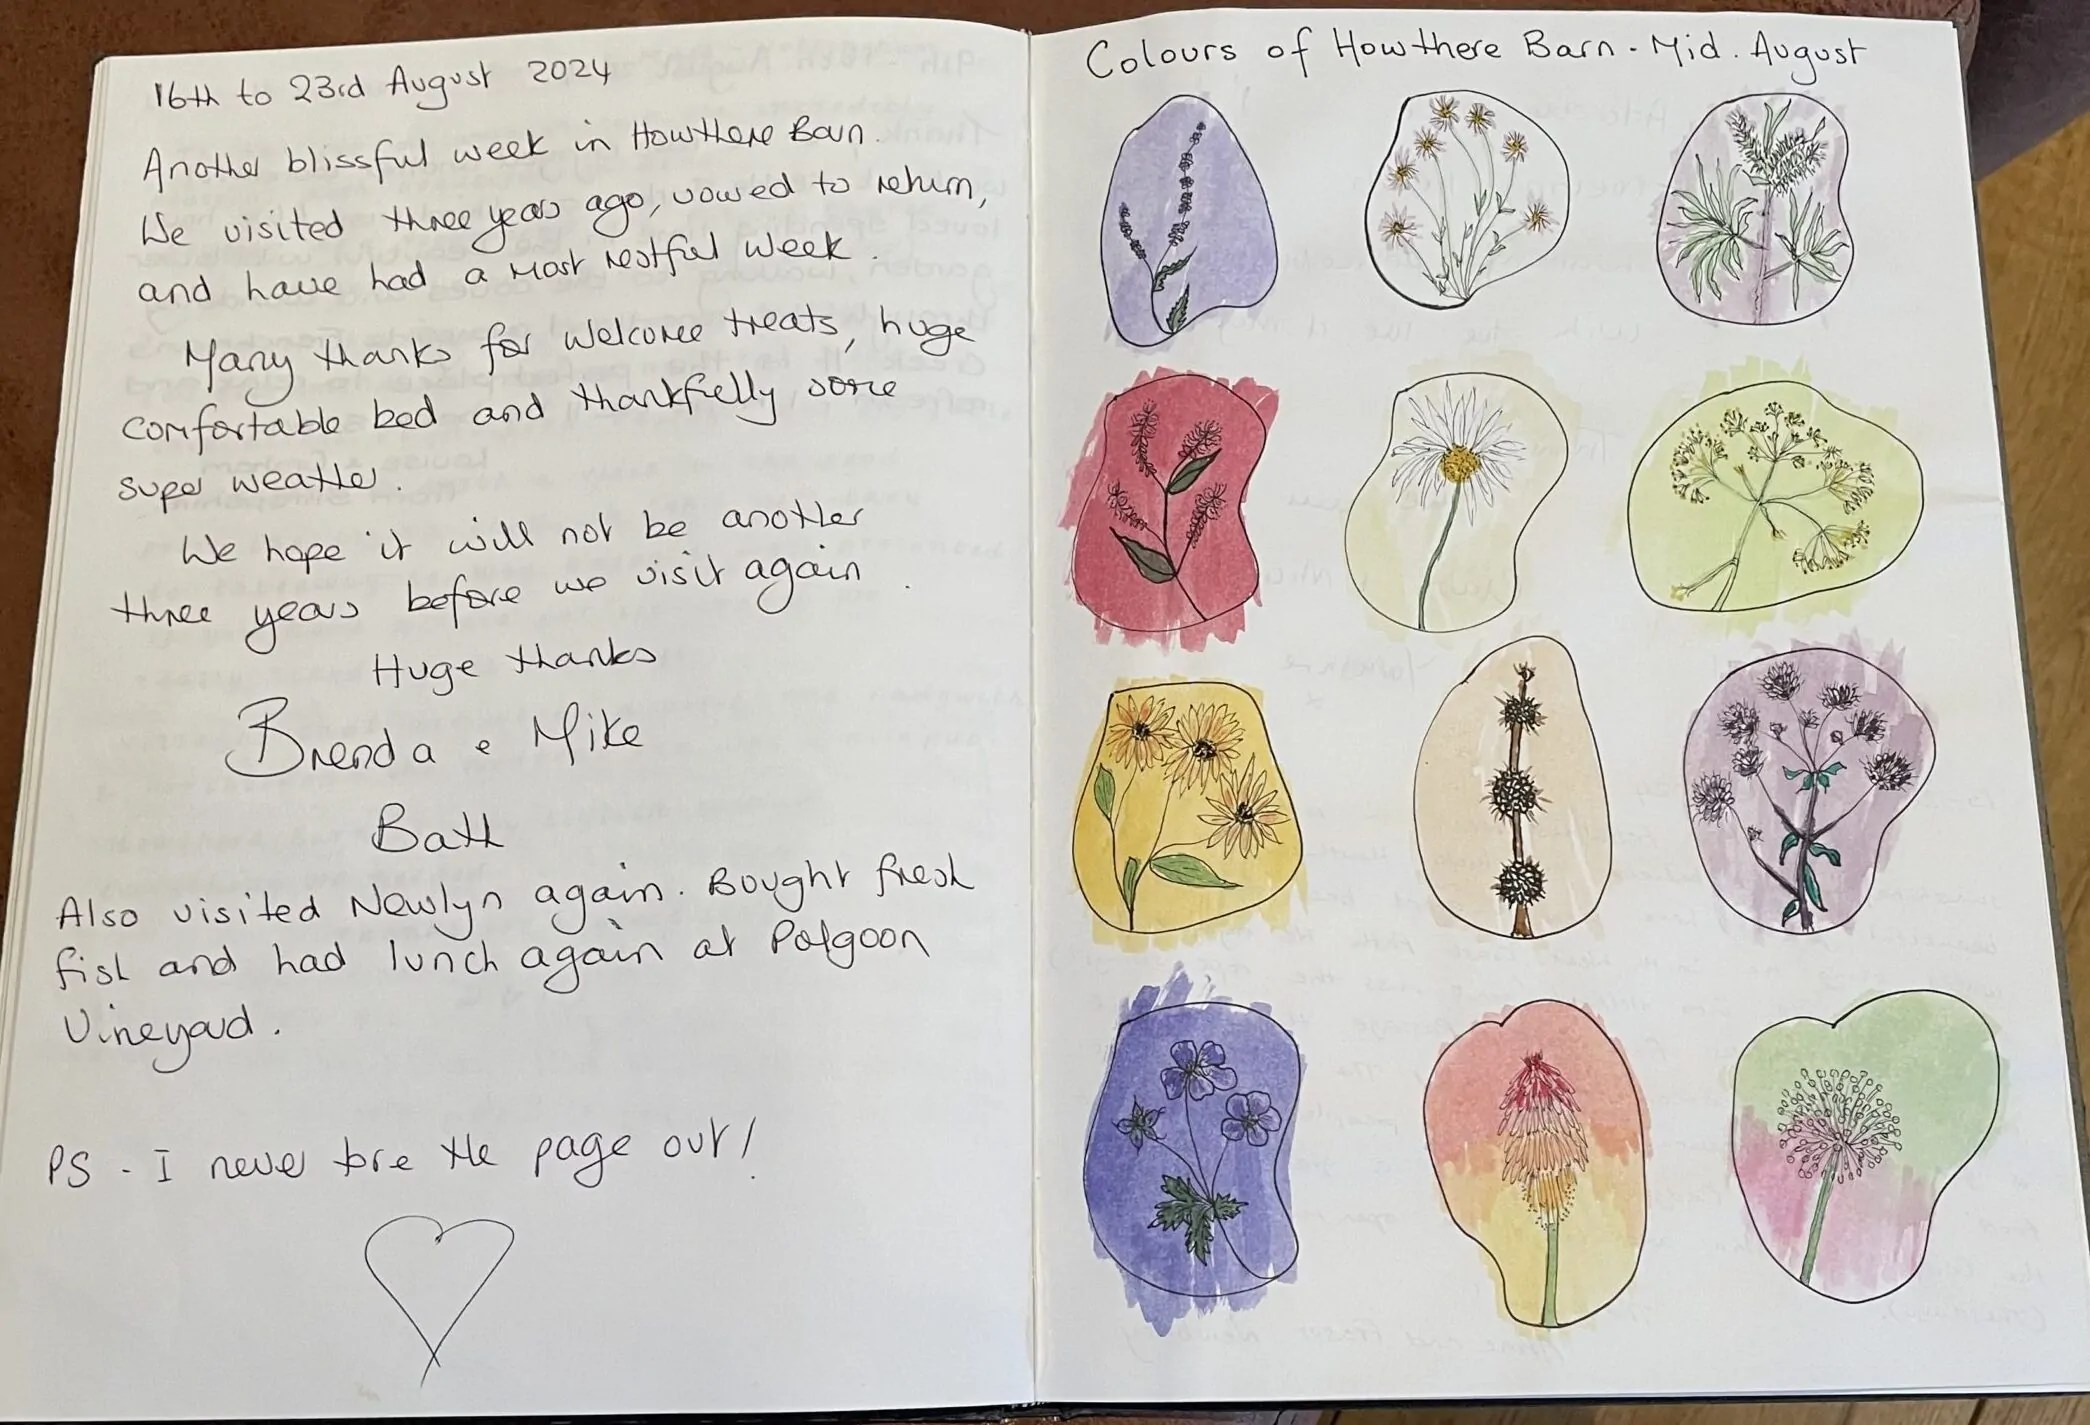 16th to 23rd August 2024
Another blissful week in Howthere Barn.
We visited three years ago, vowed to return,
and have had a most restful week.
Many thanks for welcome treats, huge
comfortable bed and thankfully some
super weather.
We hope it will not be another
three years before we visit again.
Huge thanks
Brenda & Mike
Bath
Also visited Newlyn again. Bought fresh
fish and had lunch again at Polgoon
Vineyard.
PS - I never tore the page out!
Colours of Howthere Barn - Mid. August